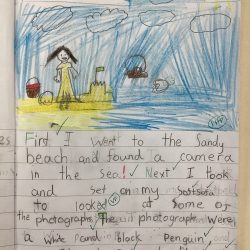 First I went to the Sandy
beach and found a camera
in the sea! Next I took
and set on my
to looked at some of
the photographs. The photograph were
a white and black Penguin